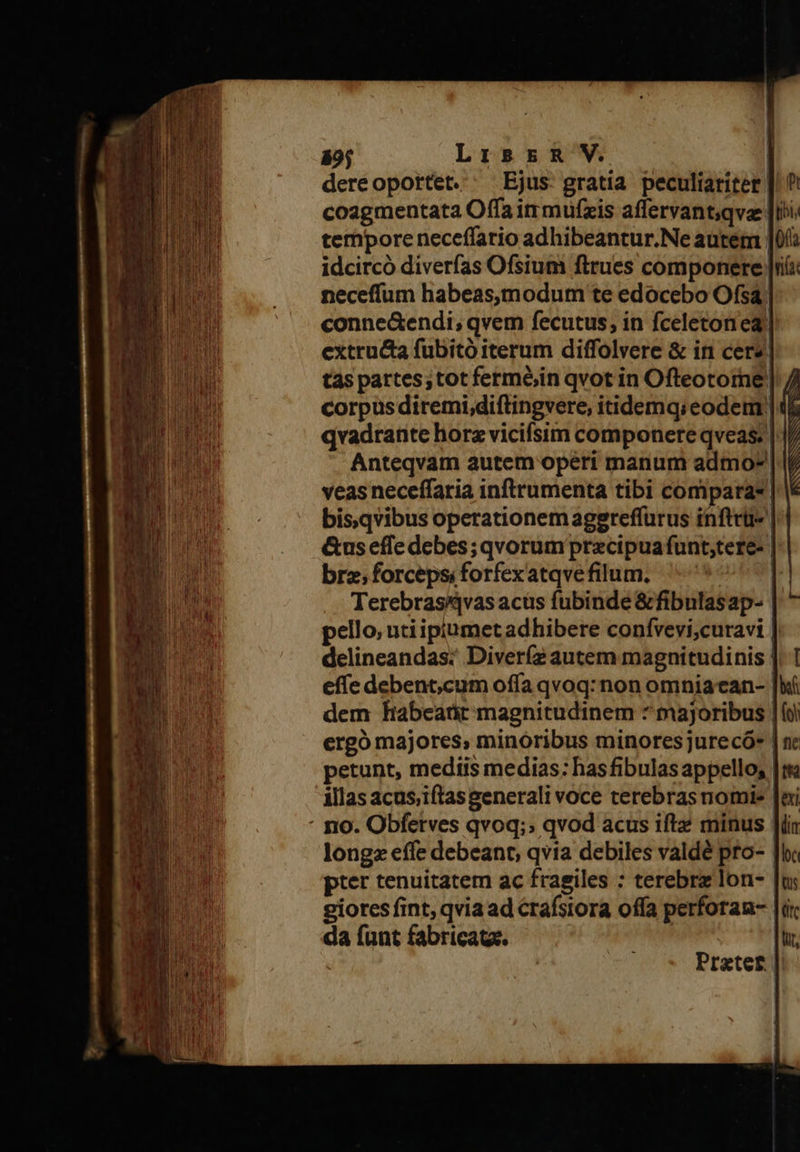 895 LIBER V.
dere oportet. Ejus gratia peculiariter
coagmentata Ossa in musæis asservant, qvæ
tempore necessario adhibeantur. Ne autem
idcircò diversas Ossium strues componere
necessum habeas, modum te edocebo Ossa
connectendi, qvem secutus, in sceleton ea
extructa subitò iterum dissolvere & in cer-
tas partes, tot fermè, in qvot in Osteotome
corpus diremi, distingvere, itidemq; eodem
qvadrante horæ vicissim componere qveas.
Anteqvam autem operi manum admo-
veas necessaria instrumenta tibi compara-
bis, qvibus operationem aggressurus instru-
ctus esse debes; qvorum præcipua sunt, tere-
bræ, forceps, forfex atqve filum.
Terebras, qvas acus subinde & fibulas ap-
pello, uti ipsumet adhibere consvevi, curavi
delineandas: Diversæ autem magnitudinis
esse debent, cum ossa qvoq: non omnia ean-
dem habeant magnitudinem : majoribus
ergò majores, minoribus minores jure cō-
petunt, mediis medias: has fibulas appello,
illas acus, istas generali voce terebras nomi-
no. Observes qvoq;, qvod acus istæ minus
longæ esse debeant, qvia debiles valdè pro-
pter tenuitatem ac fragiles : terebræ lon-
giores sint, qvia ad crassiora ossa perforan-
da sunt fabricatæ.
Præter